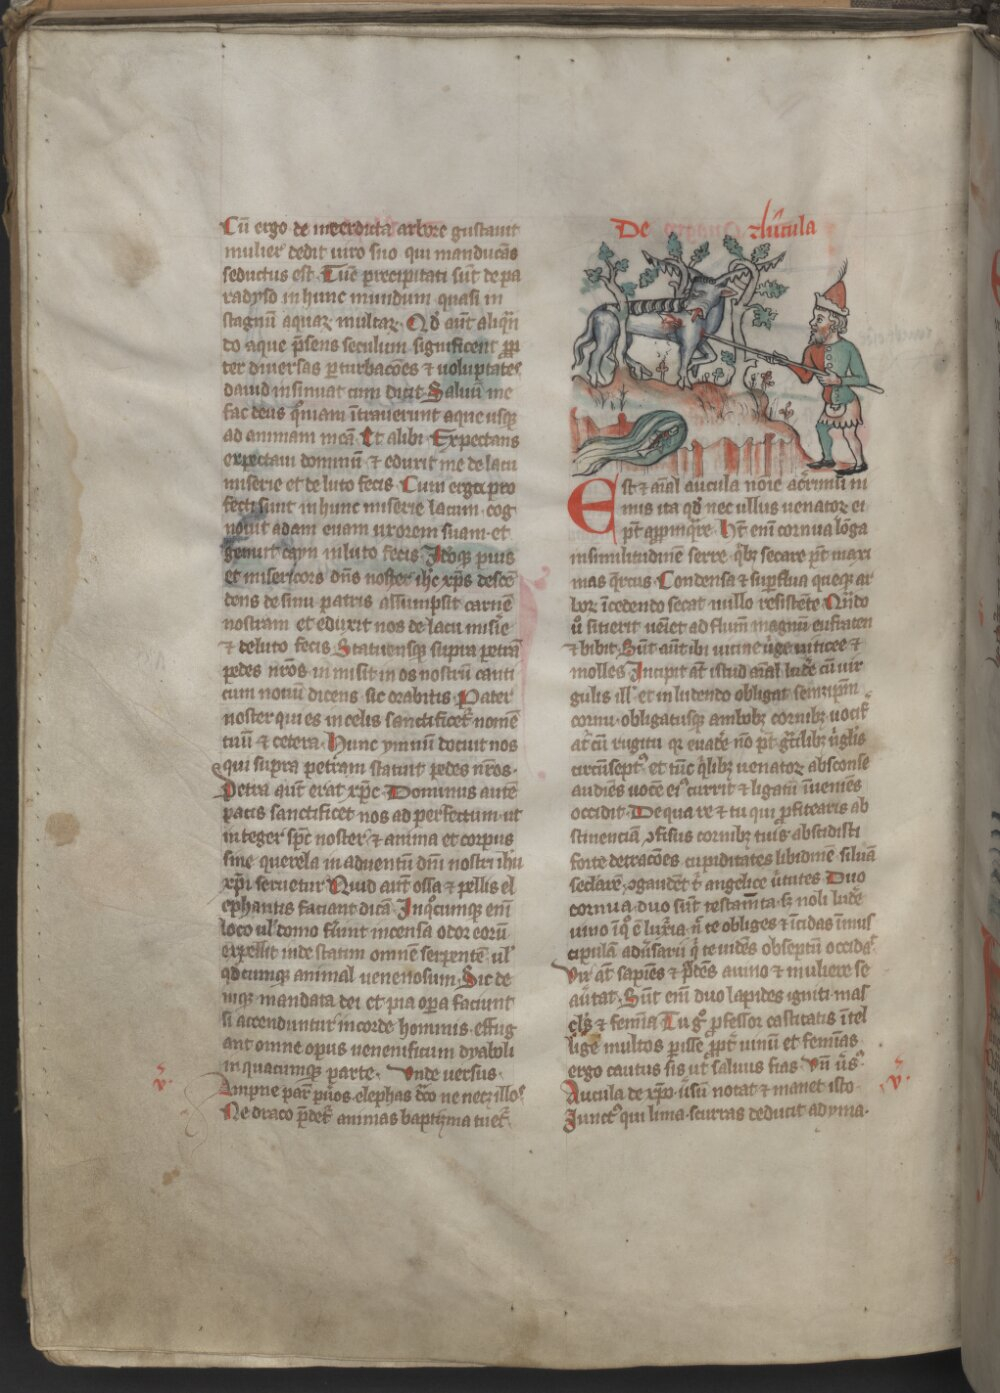 Cū ergo de interdicta arbore gustauit
mulier dedit uiro suo qui manducās
seductus est. Tūc precipitati sūt de pa
radyso in hunc mundum quasi in
stagnū aquaꝝ multaꝝ. Qd̓ aūt aliqn̄
do aque p̄sens seculum significent ꝓp
ter diuersas ꝑturbacōes ⁊ uoluptates
dauid insinuat cum dicit. Saluū me
fac deus qm̄iam ītrauerunt aque usqꝫ
ad animam meā. Et alibi. Expectans
expectaui dominū ⁊ eduxit me de lacu
miserie et de luto fecis. Cum ergo pro
fecti sunt in hunc miserie lacum. cog
nouit adam euam uxorem suam. et
genuit cayn in luto fecis. Itaqꝫ pius
et misericors dn̄s noster ihc̄ xp̄s descē
dens de sinu patris assumpsit carnē
nostram et eduxit nos de lacu misīe
⁊ de luto fecis. Statuensqꝫ supra petrā
pedes nr̄os. inmisit in os nostrū canti
cum nouū dicens sic orabitis. Pater
noster qui es in celis sanctificet᷑ nomē
tuū ⁊ cetera. Hunc ymnū docuit nos
qui supra petram statuit pedes nr̄os.
Petra aūt erat xp̄c. Dominus autē
pacis sanctificet nos ad perfectum. ut
integer spc̄ noster ⁊ anima et corpus
sine querela in aduentū dn̄i nostri ihū
xp̄i seruetur. Quid aūt ossa ⁊ pellis el
ephantis faciant dicā. In qͦcumqꝫ enī
loco ul̓ domo fūint incensa odor eorū
expellit inde statim omnē serpentē. ul̓
qd̓cumqꝫ animal uenenosum. Sic de
niqꝫ mandata dei et pia opa faciunt
si accenduntur in corde hominis. effug
ant omne opus uenenificum dyaboli
in quacumqꝫ parte. Vnde uersus.
v̓.
Ampne par̄ pu̓os elephas dr̄co ne necꝫ illos
Ne draco p̄det᷑ animas baptisma tuet᷑.
De Aucula
Est ⁊ aīal aucula noīe acrīmū ni
mis ita qd̓ nec ullus uenator ei
pt̄ aꝓpinqͣre. Ht̄ enī cornua lōga
in similitudinē serre. qͥbꝫ secare pt̄ maxi
mas qͥrcus. Condensa ⁊ suꝑflua queqꝫ ar
boꝝ īcedendo secat nullo resistēte. Qn̄do
u̓ sitierit ueīet ad flum̄ magnū eufraten
⁊ bibit. Sūt aūt ibi uicine uirge uiticee ⁊
molles. Incipit at̄ istud aīal ludē cū uir
gulis ill̓ et in ludendo obligat semꝫipm̄
cornu. obligatusqꝫ ambobꝫ cornibꝫ uocif᷑
at̄ cū rugitu qꝛ euadē nō pt̄ gͣcilibꝫ uīgl̓is
circūsept᷒ et tūc qͥlibꝫ uenatoꝝ absconse
audiēs uocē ei᷒ currit ⁊ ligatū īueniēs
occidit. De qua re ⁊ tu qui ꝓfitearis ab
stinenciā ɔfisus cornibꝫ tuis abscidisti
forte detracōes cupiditates libidinē siluā
seclarē. ɔgaudēt t̄ angelice uͥtutes. Duo
cornua duo sūt testamīta. sꝫ noli ludē
uino ī qͦ ē luxͥia. ñ te obliges ⁊ īcidas īmus
cipulam adūsarii qͥ te uidēs obseptū occidat
Vir at̄ sapiēs ⁊ p̄dēs a uino ⁊ muliere se
aūtat. Sūt enī duo lapides igniti. mas
clꝫ ⁊ femīa. Tu gͦ ꝓfessor castitatis ītel
lige multos ꝑisse ꝓpt̄ uinū et feminas
ergo cautus sis ut̄ saluus fias. Vn̄ u̓s᷒
v̓.
Aucula de xp̄o. ūsū notat ⁊ manet isto
Iunct᷒ qui lima. scurras deducit ad yma.